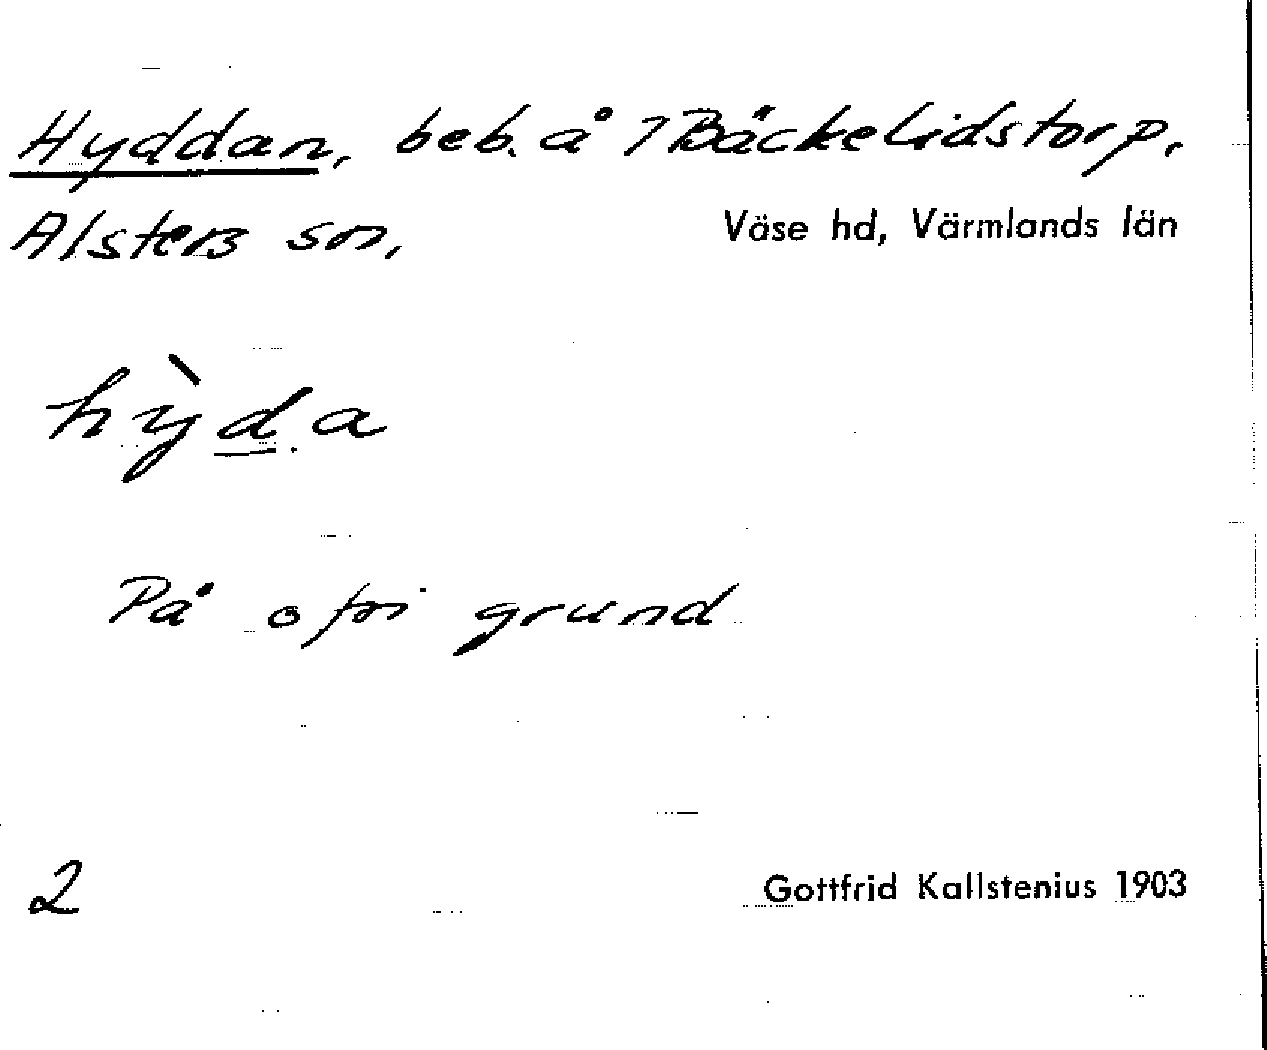 Hyddan, beb. å 7 Bäckelidstorp,
Alsters sn, Väse hd, Värmlands län
hy̆̀da
På ofri grund
2 Gottfrid Kallstenius 1903